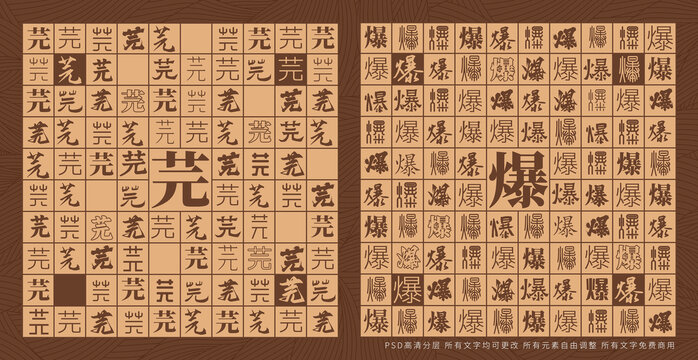 芫芫芫芫芫芫芫芫芫
芫芫芫芫芫芫芫芫芫
芫芫芫芫芫芫芫芫芫芫
芫芫芫芫芫芫芫芫芫芫
芫芫芫芫芫芫芫芫
芫
芫芫芫芫芫芫
芫芫芫芫芫芫芫芫
芫芫芫芫芫芫芫芫芫芫
芫芫芫芫芫芫芫芫芫
芫芫芫芫芫芫芫芫芫芫
爆爆爆爆爆爆爆爆爆爆
爆爆爆爆爆爆爆爆爆爆
爆爆爆爆爆爆爆爆爆爆
爆爆爆爆爆爆爆爆爆爆
爆爆爆爆爆爆爆爆
爆
爆爆爆爆爆爆爆爆
爆爆爆爆爆爆爆爆爆爆
爆爆爆爆爆爆爆爆爆爆
爆爆爆爆爆爆爆爆爆爆
爆爆爆爆爆爆爆爆爆爆
PSD高清分层 所有文字均可更改 所有元素自由调整 所有文字免费商用